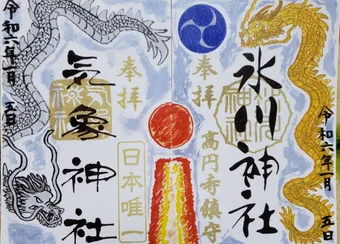 奉拝
氷川神社
高円寺鎮守
令和六年一月
五日
奉拝
気象神社
日本唯一
令和六年一月
五日